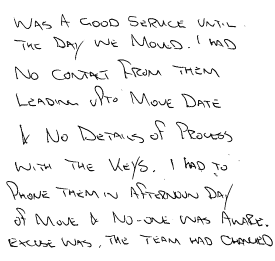 WAS A GOOD SERVICE UNTIL
THE DAY WE MOVED. I HAD
NO CONTACT FROM THEM
LEADING UPTO MOVE DATE
& NO DETAILS OF PROCESS
WITH THE KEYS. I HAD TO
PHONE THEM IN AFTERNOON DAY
OF MOVE & NO-ONE WAS AWARE.
EXCUSE WAS, THE TEAM HAD CHANGED